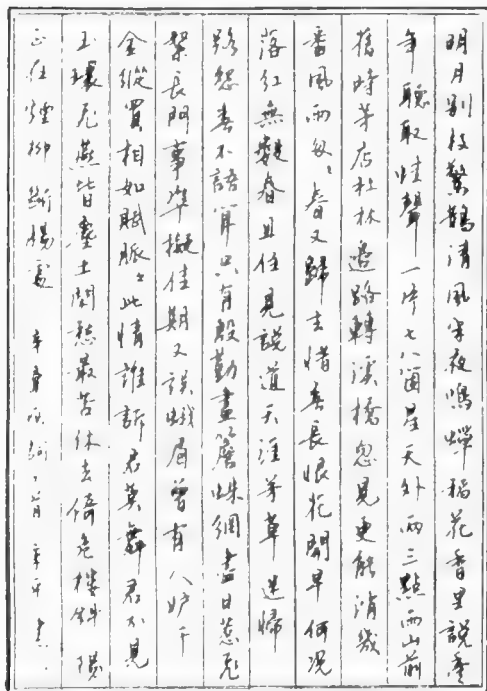 明月别枝驚鵲清風半夜鳴蟬稻花香里說豐
年聽取蛙聲一片七八箇星天外兩三點雨山前
舊時茅店社林邊路轉溪橋忽見更能消幾
番風雨匆々春又歸去惜春長恨花開早何況
落紅無數春且住見說道天涯芳草迷歸
路怨春不語算只有殷勤畫簷蛛網盡日惹飛
絮長門事準擬佳期又誤蛾眉曾有人妒千
金縱買相如賦脈々此情誰訴君莫舞君不見
玉環飛燕皆塵土閒愁最苦休去倚危樓斜陽
正在煙柳斷腸處 辛棄疾詞二首 書